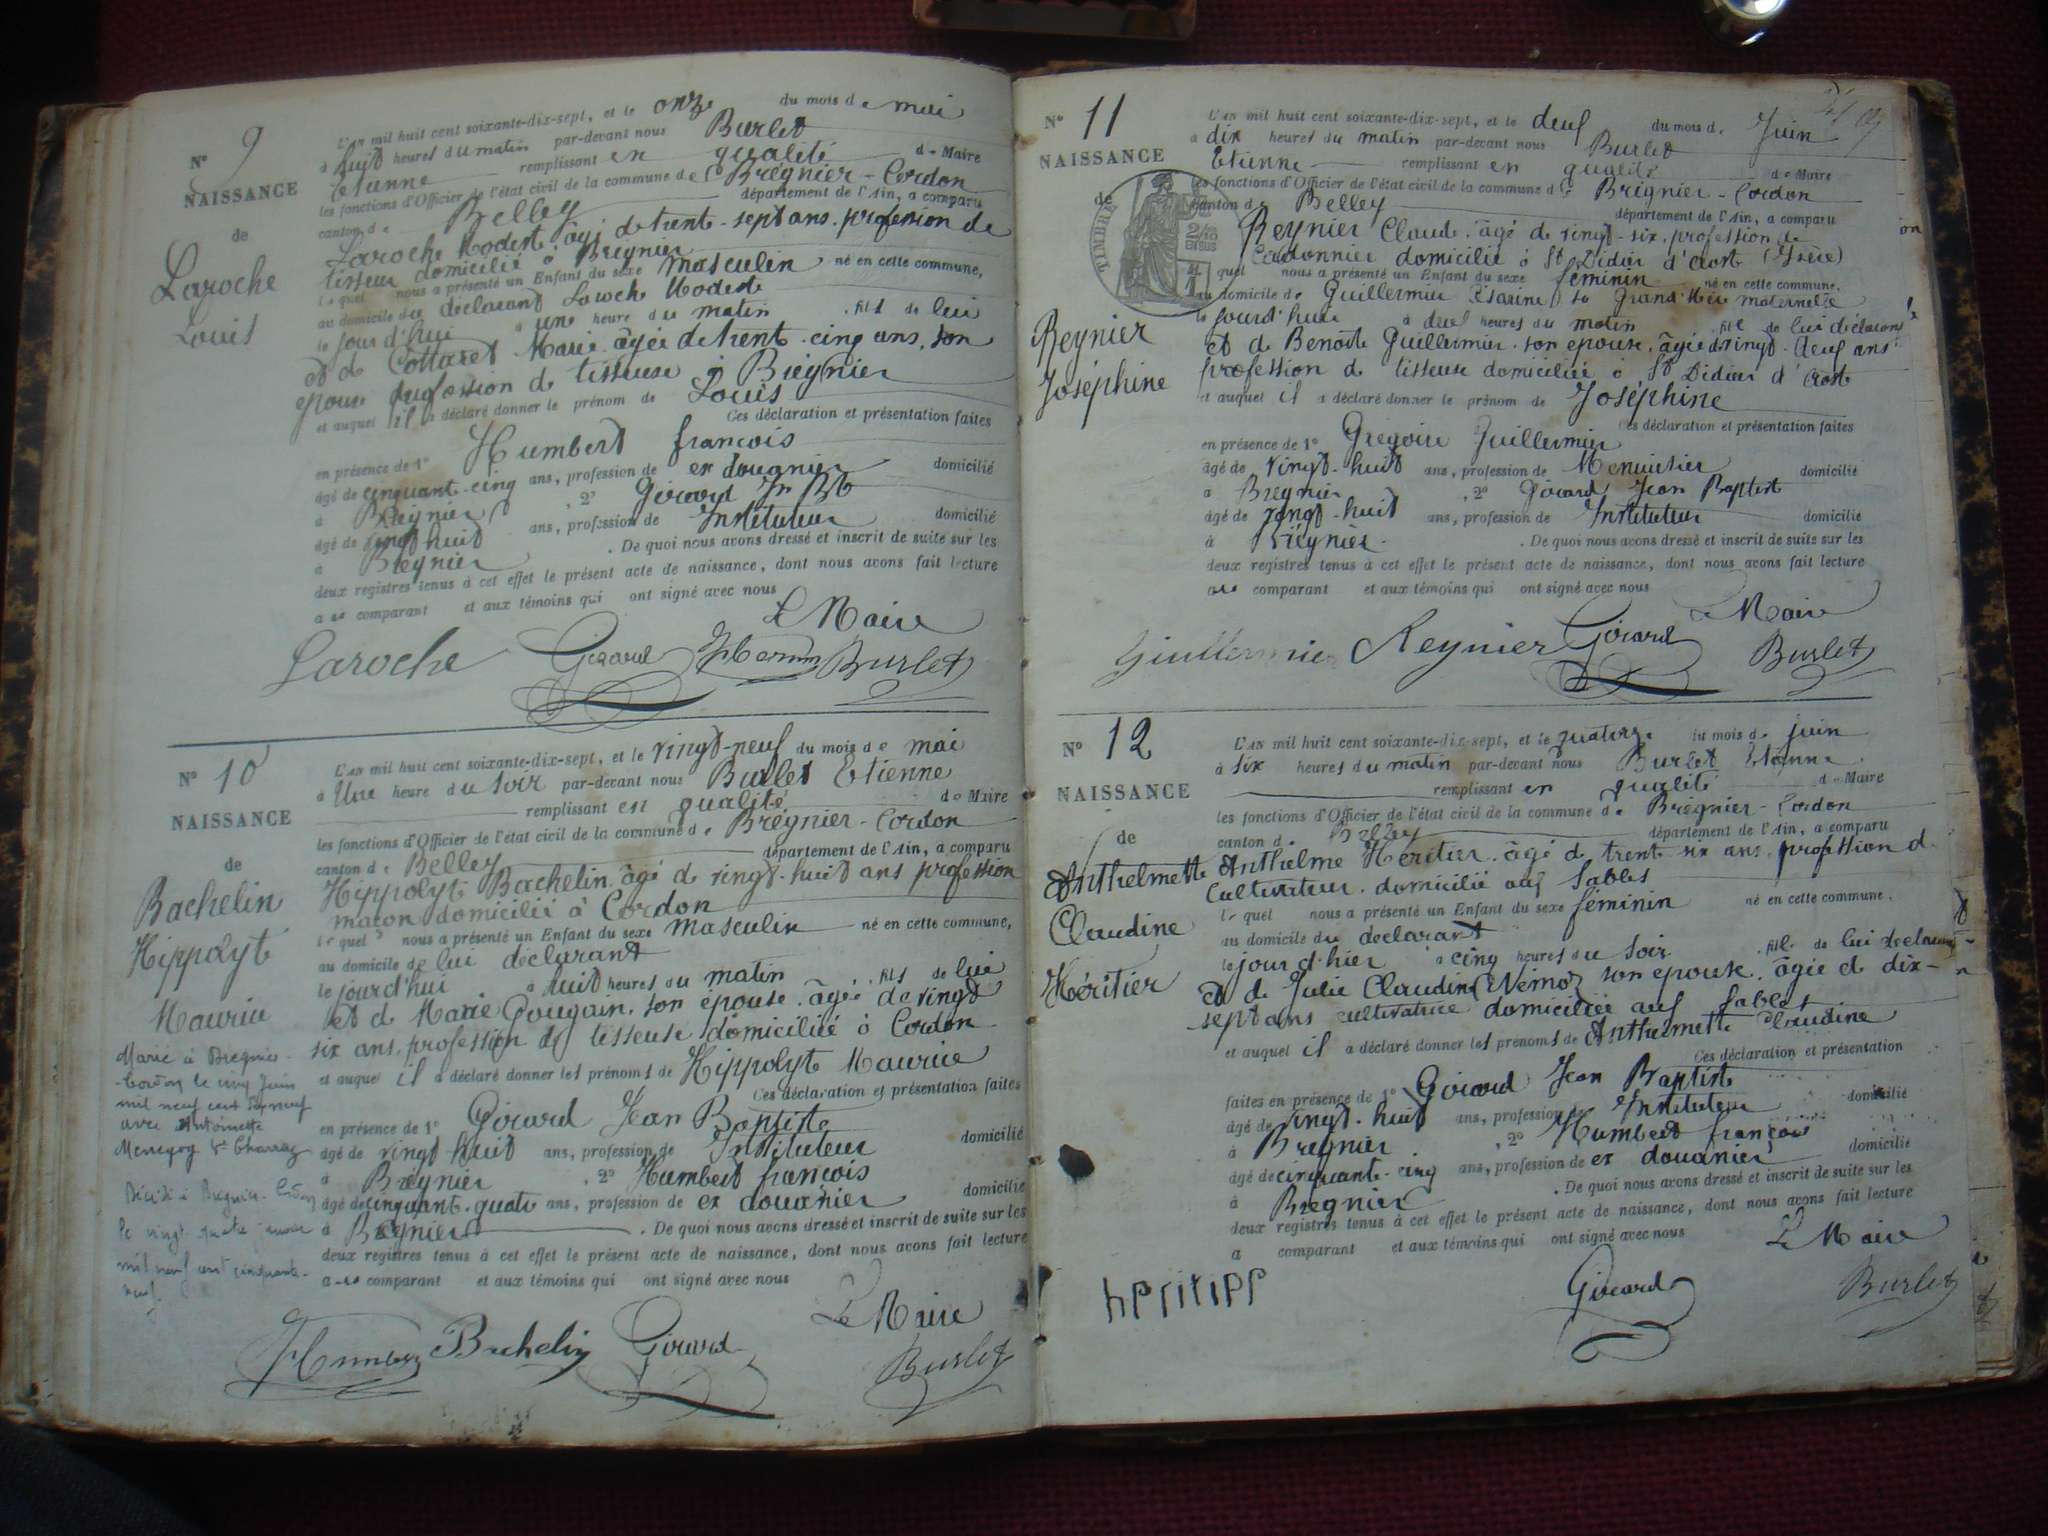 N° 9
NAISSANCE
de
Laroche
Louis
L'an mil huit cent soixante-dix-sept, et le onze du mois de mai
à huit heures du matin par-devant nous Burlet
Etienne remplissant en qualité de Maire
les fonctions d'Officier de l'état civil de la commune de Brégnier-Cordon
canton de Belley département de l'Ain, a comparu
Laroche Modeste, âgé de trente-sept ans, profession de
tisseur domicilié à Bregnier
lequel nous a présenté un Enfant du sexe masculin né en cette commune,
au domicile du déclarant Laroche Modeste
le jour d'hui à une heure du matin fils de lui
et de Cottaret Marie âgée de trente-cinq ans, son
épouse profession de tisseuse à Brégnier
et auquel il a déclaré donner le prénom de Louis
Ces déclaration et présentation faites
en présence de 1° Humbert françois
âgé de cinquante-cinq ans, profession de ex douanier domicilié
à Brégnier, 2° Girard Jn Bte
âgé de vingt huit ans, profession de Instituteur domicilié
à Bregnier. De quoi nous avons dressé et inscrit de suite sur les
deux registres tenus à cet effet le présent acte de naissance, dont nous avons fait lecture
au comparant et aux témoins qui ont signé avec nous
Le Maire
Laroche Girard Burlet
N° 10
NAISSANCE
de
Bachelin
Hippolyte
Maurice
Marié à Bregnier-
Cordon le cinq Juin
mil neuf cent
avec Antoinette
Décédé à Bregnier-Cordon
le vingt quatre
mil neuf cent cinquante-
neuf.
L'an mil huit cent soixante-dix-sept, et le vingt-neuf du mois de mai
à Une heure du soir par-devant nous Burlet Etienne
remplissant en qualité de Maire
les fonctions d'Officier de l'état civil de la commune de Brégnier-Cordon
canton de Belley département de l'Ain, a comparu
Hippolyte Bachelin, âgé de vingt-huit ans profession
maçon domicilié à Cordon
lequel nous a présenté un Enfant du sexe masculin né en cette commune,
au domicile de lui déclarant
le jourd'hui à huit heures du matin fils de lui
et de Marie Gougain, son épouse, âgée de vingt
six ans, profession de tisseuse domiciliée à Cordon
et auquel il a déclaré donner les prénoms de Hippolyte Maurice
Ces déclaration et présentation faites
en présence de 1° Girard Jean Baptiste
âgé de vingt huit ans, profession de Instituteur domicilié
à Brégnier, 2° Humbert françois
âgé de cinquante-quatre ans, profession de ex douanier domicilié
à Bregnier. De quoi nous avons dressé et inscrit de suite sur les
deux registres tenus à cet effet le présent acte de naissance, dont nous avons fait lecture
au comparant et aux témoins qui ont signé avec nous
Le Maire
Humbert Bachelin Girard Burlet
N° 11
NAISSANCE
de
TIMBRE
Reynier
Joséphine
L'an mil huit cent soixante-dix-sept, et le deux du mois de Juin
à dix heures du matin par-devant nous Burlet
Etienne remplissant en qualité de Maire
les fonctions d'Officier de l'état civil de la commune de Brégnier-Cordon
canton de Belley département de l'Ain, a comparu
Reynier Claude, âgé de vingt-six, profession de
Cordonnier domicilié à St Didier d'Aoste (Isère)
quel nous a présenté un Enfant du sexe féminin né en cette commune,
au domicile de Guillermier Césarine sa Grand'Mère maternelle
le jourd'hui à deux heures du matin fille de lui déclarant
et de Benoîte Guillermier, son épouse, âgée de vingt-deux ans
profession de tisseuse domiciliée à St Didier d'Aoste
et auquel il a déclaré donner le prénom de Joséphine
Ces déclaration et présentation faites
en présence de 1° Gregoire Guillermier
âgé de vingt-huit ans, profession de Menuisier domicilié
à Bregnier, 2° Girard Jean Baptiste
âgé de vingt-huit ans, profession de Instituteur domicilié
à Brégnier. De quoi nous avons dressé et inscrit de suite sur les
deux registres tenus à cet effet le présent acte de naissance, dont nous avons fait lecture
au comparant et aux témoins qui ont signé avec nous
Le Maire
Guillermier Reynier Girard Burlet
N° 12
NAISSANCE
de
Anthelmette
Claudine
Héritier
L'an mil huit cent soixante-dix-sept, et le quatorze du mois de juin
à six heures du matin par-devant nous Burlet Etienne
remplissant en qualité de Maire
les fonctions d'Officier de l'état civil de la commune de Brégnier-Cordon
canton de Belley département de l'Ain, a comparu
Anthelme Héritier, âgé de trente six ans, profession de
Cultivateur, domicilié aux Sables
lequel nous a présenté un Enfant du sexe féminin né en cette commune,
au domicile du déclarant
le jour d'hier à cinq heures du soir fille de lui déclarant
et de Julie Claudine Nemoz son épouse, âgée de dix-
sept ans cultivatrice domiciliée aux Sables
et auquel il a déclaré donner les prénoms de Anthelmette Claudine
Ces déclaration et présentation
faites en présence de 1° Girard Jean Baptiste
âgé de vingt-huit ans, profession de Instituteur domicilié
à Bregnier, 2° Humbert françois
âgé de cinquante-cinq ans, profession de ex douanier domicilié
à Bregnier. De quoi nous avons dressé et inscrit de suite sur les
deux registres tenus à cet effet le présent acte de naissance, dont nous avons fait lecture
a comparant et aux témoins qui ont signé avec nous
Le Maire
Girard Burlet